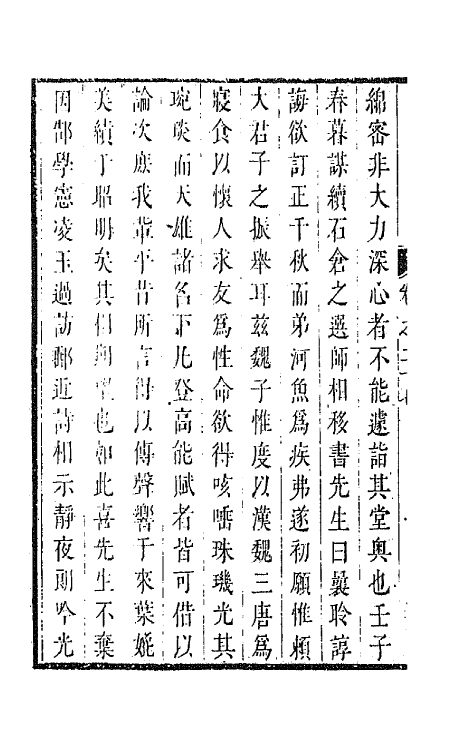 綿密非大力深心者不能遽詣其堂奥也壬子
春暮謀續石倉之選師相移書先生曰曩聆諄
誨欲訂正千秋而弟河魚爲疾弗遂初願惟頼
大君子之振舉耳兹魏子惟度以漢魏三唐爲
寝食以懷人求友爲性命欲得咳唾珠璣光其
琬琰而天雄諸名下凡登高能賦者皆可借以
論次庶我輩平昔所言得以傳聲響于來葉媲
美績于昭明矣其相期望也如此喜先生不棄
因郜學憲凌玉過訪郵近詩相示靜夜朗吟光